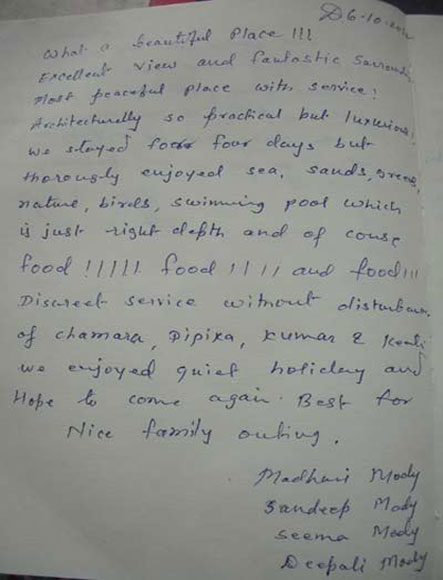 D6-10-2012
What a beautiful Place !!!
Excellent view and fantastic
Most peaceful place with service!
Architecturally so practical but luxurious!
we stayed four days but
thorougly enjoyed sea, sands, green
nature, birds, swimming pool which
is just right depth and of couse
food !!!!! food !!!! and food!!!
Discreet service without
of chamara, Dipika, Kumar &
we enjoyed quiet holiday and
Hope to come again. Best for
Nice family outing.
Madhuri Mody
Sandeep Mody
Seema Mody
Deepali Mody